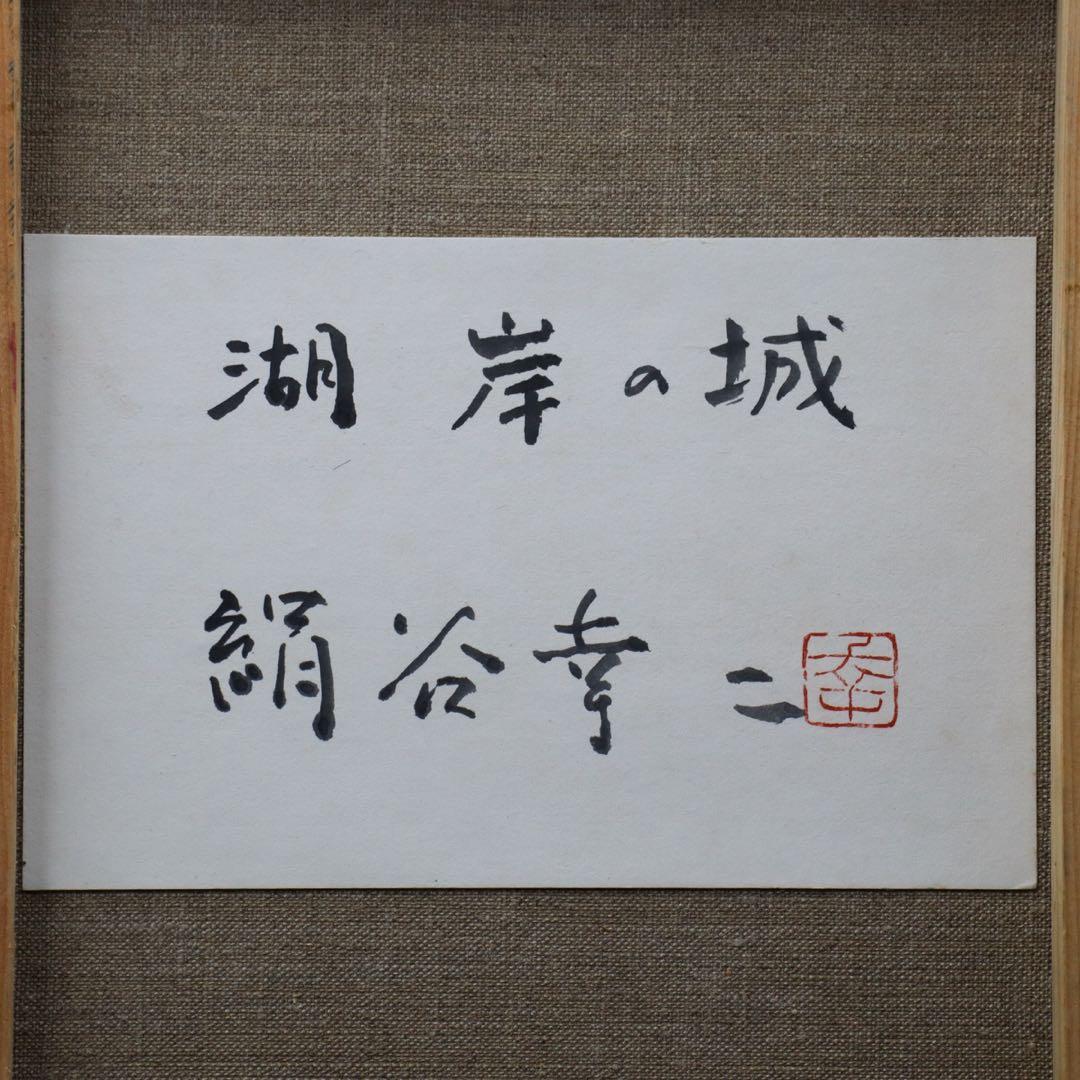 湖岸の城
絹谷幸二
幸